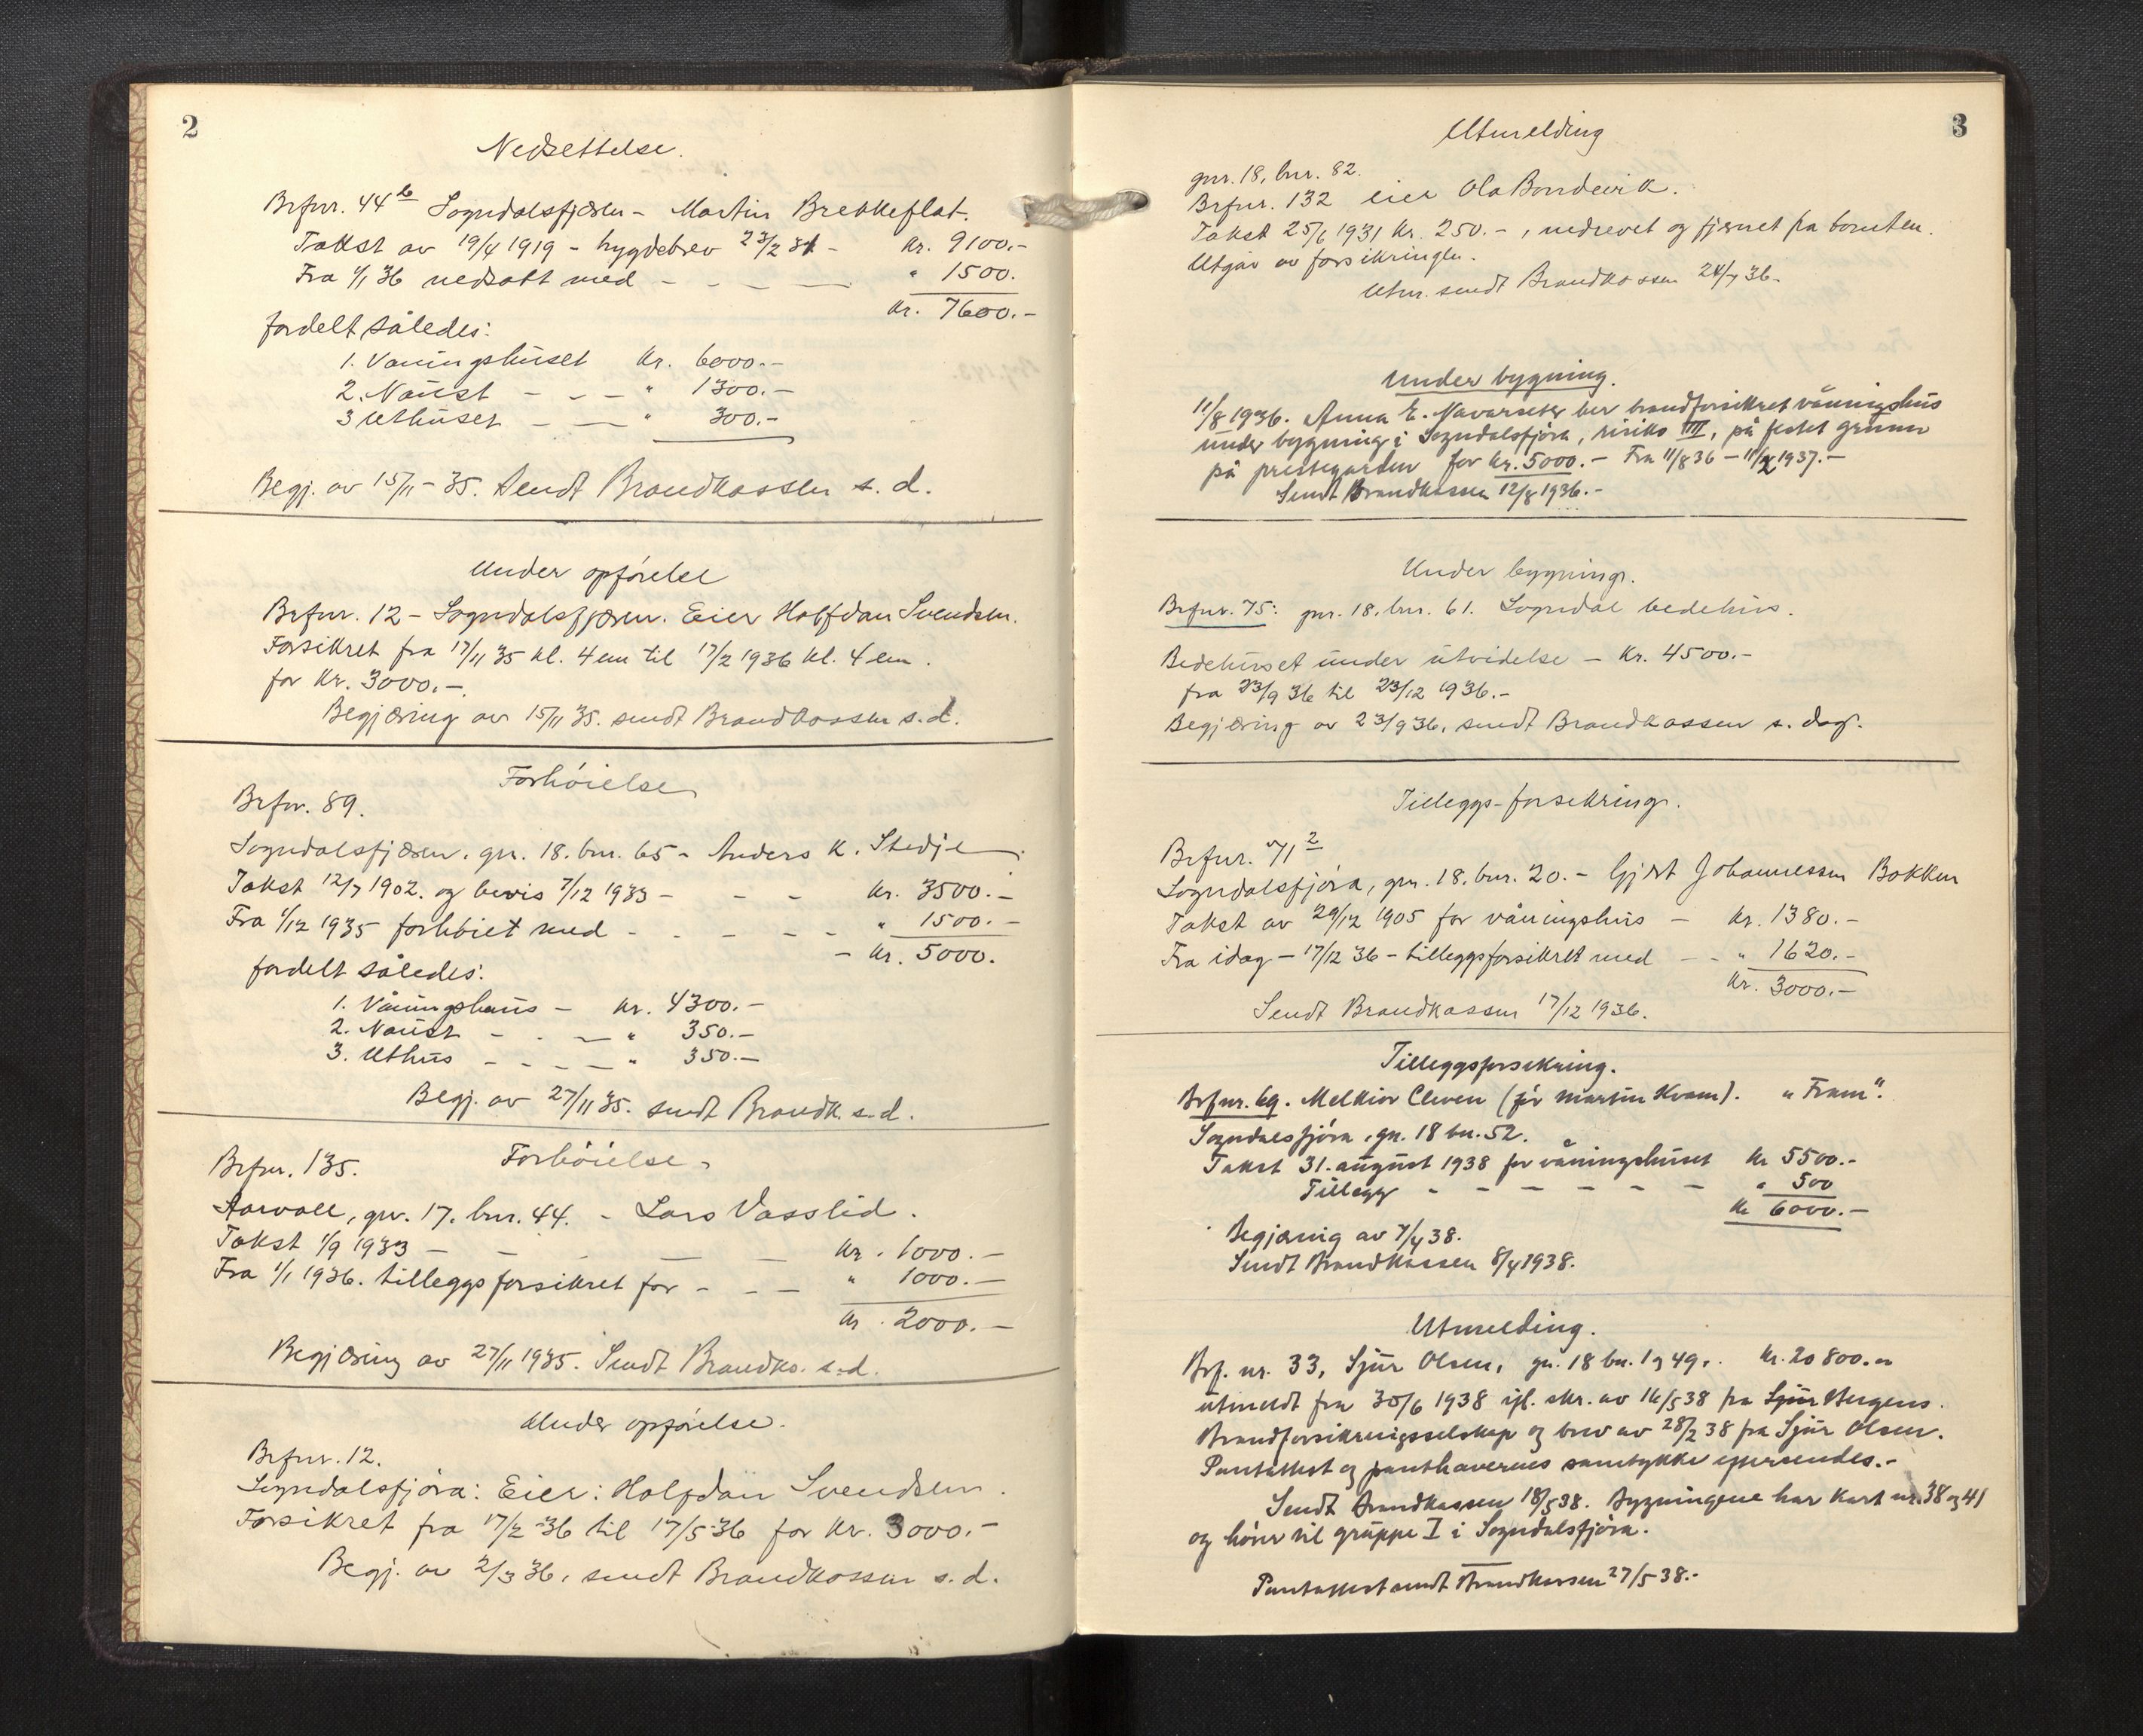 2
Nedsettelse.
Brfnr. 44 b Sogndalsfjæren - Martin Brekkeflat.
Takst av 19/4 1919 - bygdebrev 23/2 31 - kr. 9100.-
Fra 1/1 36 nedsatt med - - - - " 1500.
kr. 7600.-
fordelt således:
1. Våningshuset kr. 6000.-
2. Naust - - - " 1300.-
3 Uthuset - - " 300.-
Begj. av 15/11 - 35. Sendt Brandkassen s. d.
Under opførelse
Brfnr. 12 - Sogndalsfjæren. Eier Halfdan Svendsen.
Forsikret fra 17/11 35 kl. 4 em til 17/2 1936 kl. 4 em.
for kr. 3000.-.
Begjæring av 15/11 35. sendt Brandkassen s. d.
Forhøielse
Brfnr. 89.
Sogndalsfjæren. gnr. 18. bnr. 65 - Anders K. Stedje.
Takst 12/7 1902. og bevis 7/12 1933 - - - kr. 3500.-
Fra 1/12 1935 forhøiet med - - - - - " 1500.-
- kr. 5000.
fordelt således:
1. Våningshus - kr. 4300.-
2. Naust - - - " 350.-
3. Uthus - - - - " 350.-
Begj. av 27/11 35. sendt Brandk. s. d.
Forhøielse.
Brfnr. 135.
Aarvoll, gnr. 17. bnr. 44. - Lars Vasslid.
Takst 1/9 1933 - - - - - kr. 1000.-
Fra 1/1 1936. tilleggsforsikret for - - - " 1000.-
kr. 2000.-
Begjæring av 27/11 1935. Sendt Brandka. s. d.
Under opførelse.
Brfnr. 12.
Sogndalsfjøra: Eier: Halfdan Svendsen.
Forsikret fra 17/2 36 til 17/5-36 for kr. 3000.-
Begj. av 2/3 36, sendt Brandkassen s. d.
3
Utmelding
gnr. 18, bnr. 82.
Brfnr. 132 eier Ola Bondevik.
Takst 25/6 1931 kr. 250.-, nedrevet og fjernet fra tomten.
Utgår av forsikringen.
Utm. sendt Brandkassen 24/7 36.
Under bygning.
11/8 1936. Anna E. Navarseter ber brandforsikret våningshus
under bygning i Sogndalsfjøra, risiko III, på festet grunn
på prestegarden for kr. 5000.- Fra 11/8 36 - 11/2 1937.-
Sendt Brandkassen 12/8 1936.-
Under bygning.
Brfnr. 75: gnr. 18. bnr. 61. Sogndal bedehus.
Bedehuset under utvidelse - kr. 4500.-
fra 23/9 36 til 23/12 1936.-
Begjæring av 23/9 36, sendt Brandkassen s. dag.
Tilleggs-forsikring.
Brfnr. 71 2
Sogndalsfjøra, gnr. 18. bnr. 20. - Gjert Johannessen Bakken
Takst av 29/12 1905 for våningshus - kr. 1380.-
Fra idag - 17/12 36 - tilleggsforsikret med - - " 1620.-
kr. 3000.-
Sendt Brandkassen 17/12 1936.
Tilleggsforsikring.
Brfnr. 69. Melkior Cleven (før Martin Kvam). "Fram".
Sogndalsfjøra, gn. 18 bn. 52.
Takst 31. august 1938 for våningshuset kr 5500.-
Tillegg - - - - - - " 500
kr 6000.-
Begjæring av 7/4 38.
Sendt Brandkassen 8/4 1938.
Utmelding.
Brf. nr. 33, Sjur Olsen, gn. 18 bn. 1 og 49. kr. 20 800.-
utmeldt fra 30/6 1938 ifl. skr. av 16/5 38 fra Bergens
Brandforsikringsselskap og brev av 28/2 38 fra Sjur Olsen.
Pantattest og panthavernes samtykke ettersendes.-
Sendt Brandkassen 18/5 38. Bygningene har kart nr. 38 og 41
og hører til gruppe I i Sogndalsfjøra.
Pantattest sendt Brandkassen 27/5 38.-